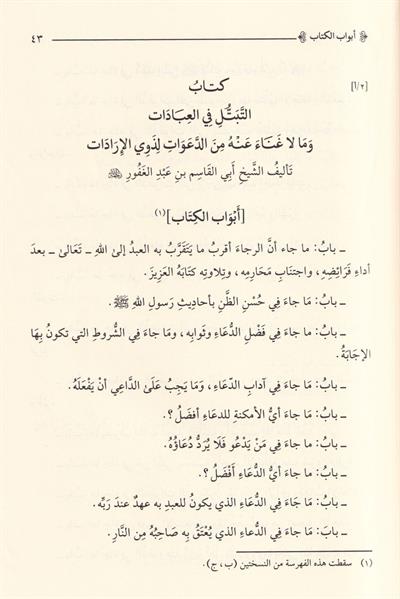 أبواب الكتاب
٤٣
[٢/أ]
كتابُ
التَبَتُّلِ فِي العِبَادَات
وَمَا لا غَنَاءَ عَنْهُ مِنَ الدَّعَوَاتِ لِذَوِي الإِرَادَات
تَأليفُ الشَّيخِ أَبِي القَاسِمِ بنِ عَبْدِ الغَفُورِ
[أَبْوَابُ الكِتَابِ] (١)
ـ بابُ: ما جاء أنَّ الرجاءَ أقربُ ما يَتَقَرَّبُ به العبدُ إلىٰ اللهِ ـ تَعَالىٰ ـ بعدَ
أداءِ فَرَائِضِهِ، واجتنابِ مَحَارِمِهِ، وتِلاوتِهِ كتابَهُ العَزِيزَ.
ـ بابُ: مَا جاءَ فِي حُسْنِ الظَّنِ بأحاديثِ رَسولِ اللهِ ﷺ.
ـ بابُ: مَا جاءَ فِي فَضْلِ الدُّعَاءِ وثَوابِهِ، ومَا جاءَ فِي الشُّروطِ التي تكونُ بِهَا
الإجَابَةُ.
ـ بابُ: مَا جاءَ فِي آدَابِ الدّعَاءِ، وَمَا يَجِبُ عَلَىٰ الدَّاعِي أنْ يَفْعَلَهُ.
ـ بابُ: مَا جاءَ أيُّ الأمكنةِ للدعَاءِ أفضَلُ؟.
ـ بابُ: مَا جاءَ فِي مَنْ يَدْعُو فَلاَ يُرَدُّ دُعَاؤُهُ.
ـ بابُ: ما جاءَ أيُّ الدُّعَاءِ أَفْضَلُ؟.
ـ بابُ: مَا جَاءَ فِي الدُّعَاءِ الذي يكونُ للعبدِ به عهدٌ عندَ رَبِّه.
ـ بابَ: مَا جاءَ فِي الدُّعاءِ الذي يُعْتَقُ بِهِ صَاحِبُهُ مِن النَّارِ.
(١) سقطت هذه الفهرسة من النسختين (ب، ج).